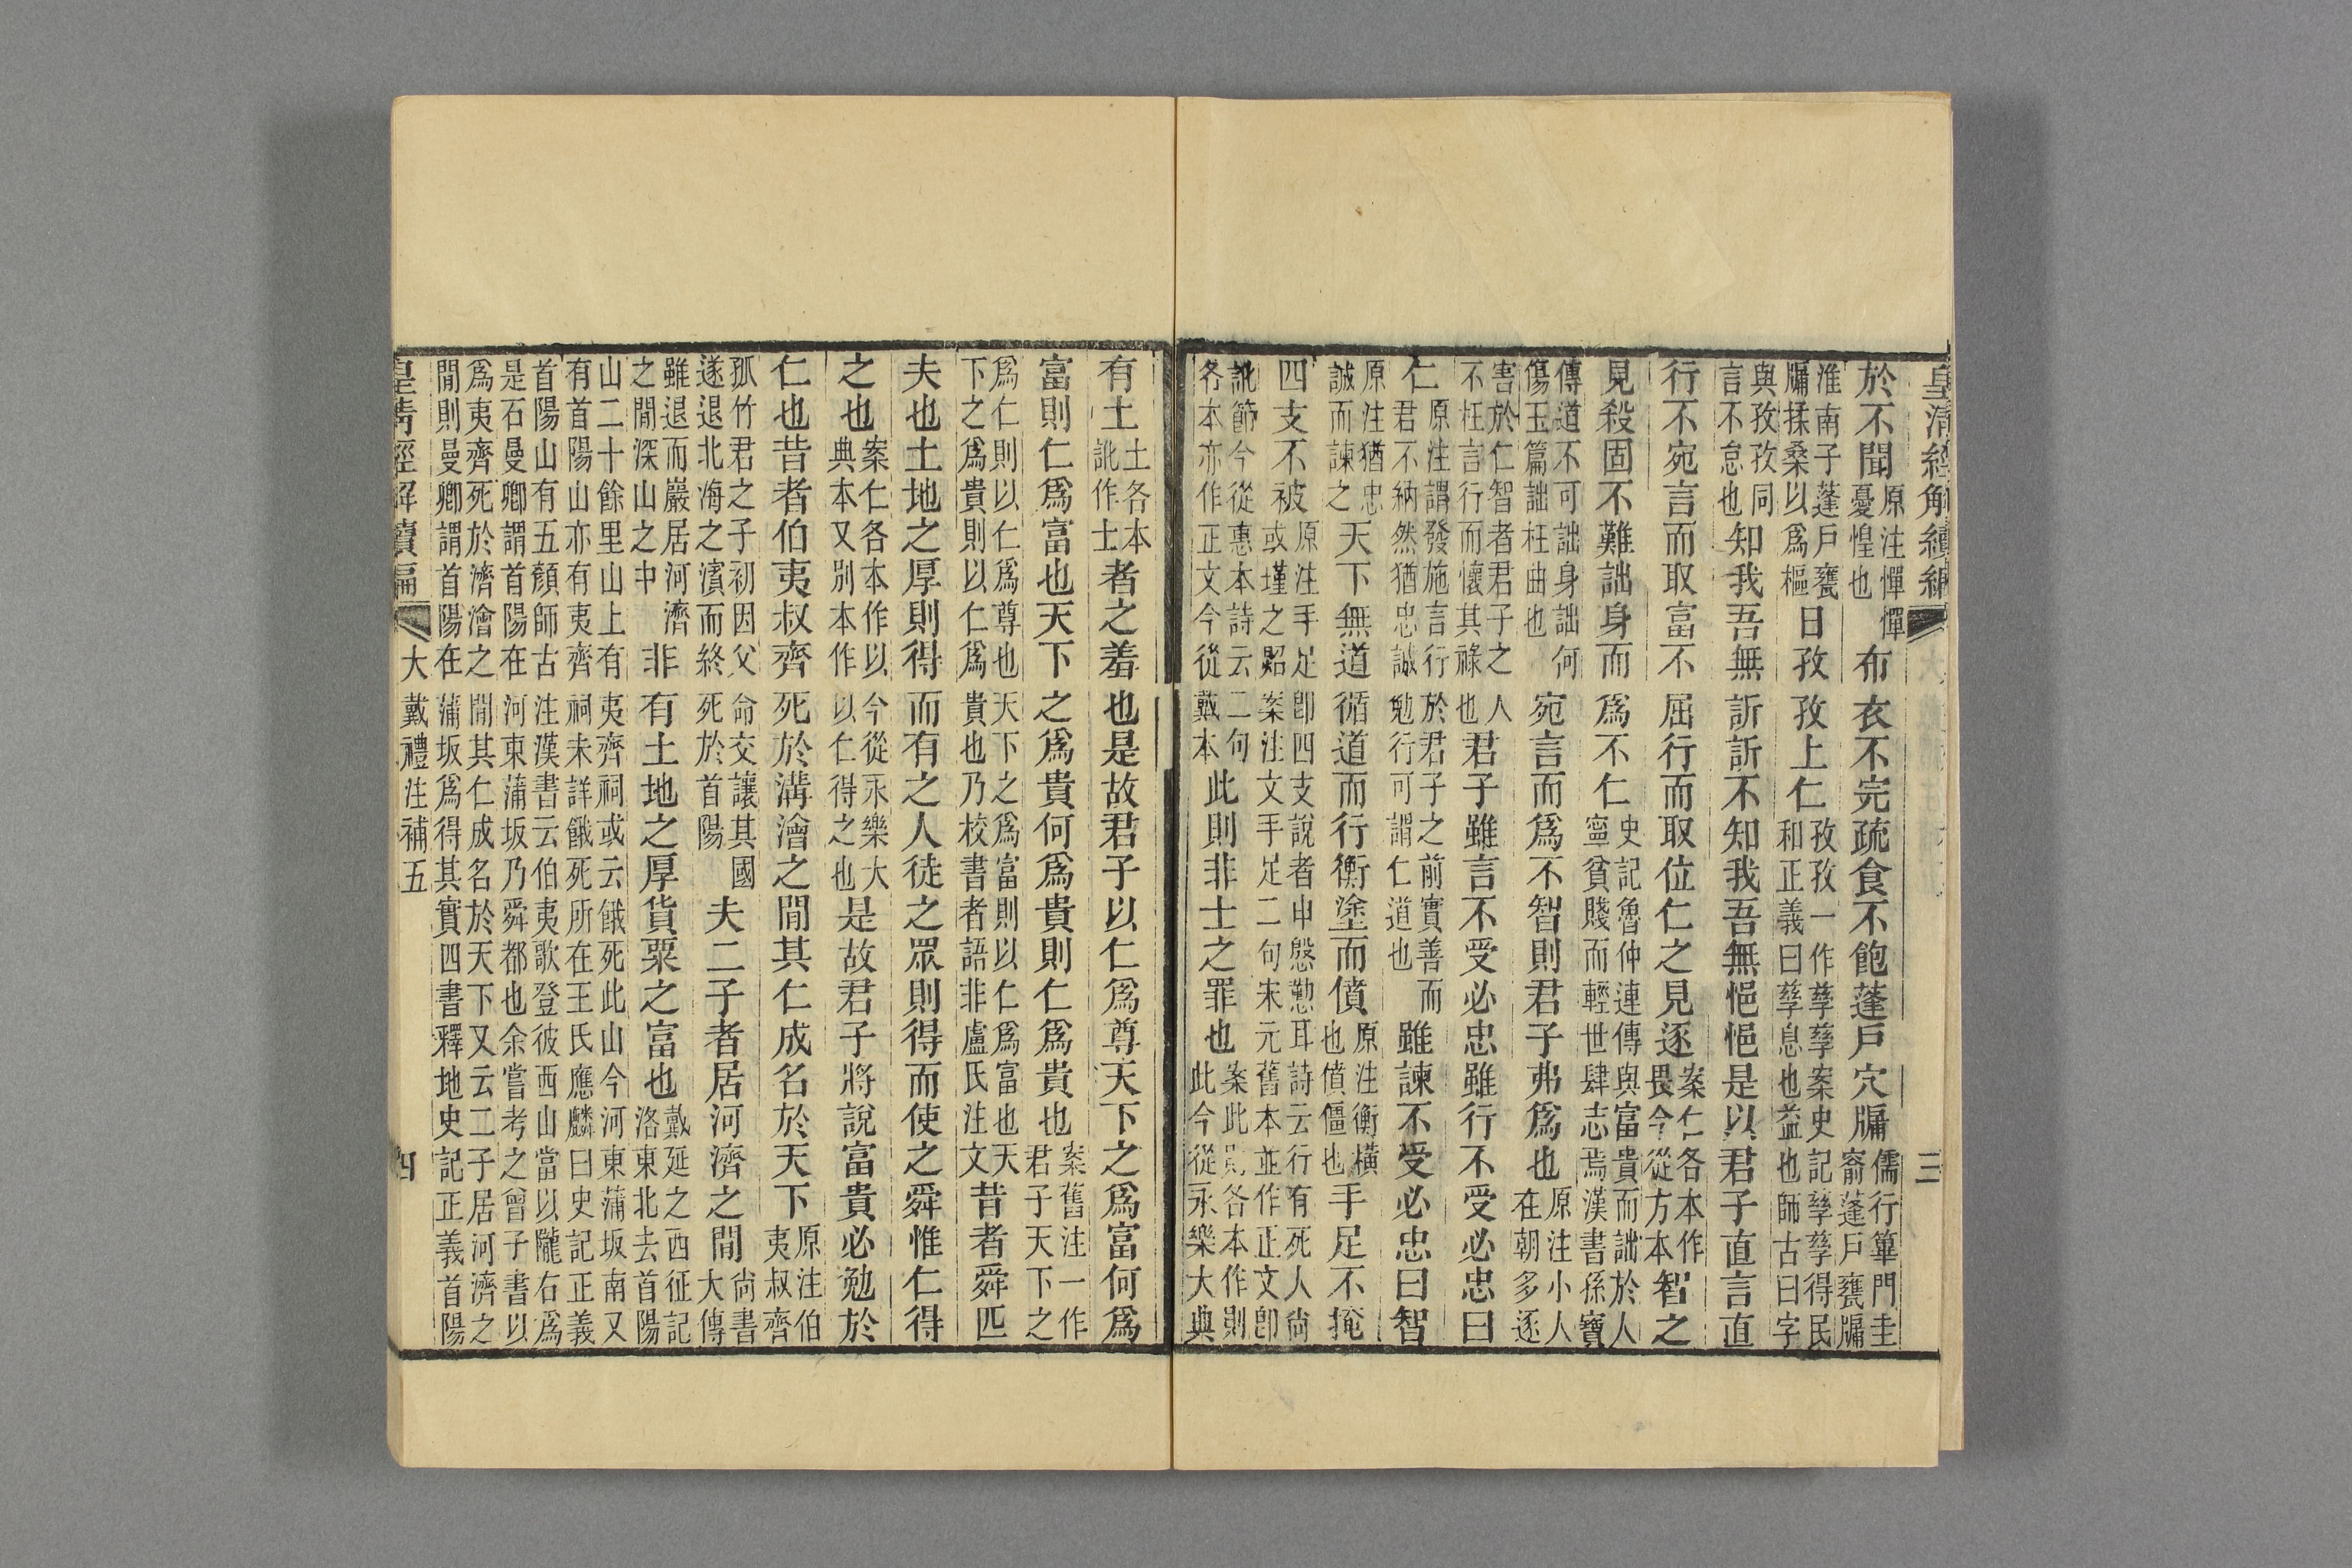 皇清經解續編 三
於不聞原注憚憚憂惶也布衣不完疏食不飽蓬戶穴牖儒行篳門圭窬蓬戶甕牖
淮南子蓬戶甕牖揉桑以爲樞日孜孜上仁孜孜一作孳孳案史記孳孳得民和正義曰孳息也益也師古曰字
與孜孜同言不怠也知我吾無訢訢不知我吾無悒悒是以君子直言直
行不宛言而取富不屈行而取位仁之見逐案仁各本作畏今從方本智之
見殺固不難詘身而爲不仁史記魯仲連傳與富貴而詘於人寧貧賤而輕世肆志焉漢書孫寶
傳道不可詘身詘何傷玉篇詘枉曲也宛言而爲不智則君子弗爲也原注小人在朝多逐
害於仁智者君子之人不枉言行而懷其祿也君子雖言不受必忠雖行不受必忠曰
仁原注謂發施言行於君子之前實善而君不納然猶忠誠勉行可謂仁道也雖諫不受必忠曰智
原注猶忠誠而諫之天下無道循道而行衡塗而僨原注衡橫也僨僵也手足不掩
四支不被原注手足卽四支說者申慇懃耳詩云行有死人尙或墐之案注文手足二句宋元舊本並作正文卽
訛節今從惠本詩云二句各本亦作正文今從戴本此則非士之罪也案此則各本作則此今從永樂大典
有土土各本訛作士者之羞也是故君子以仁爲尊天下之爲富何爲
富則仁爲富也天下之爲貴何爲貴則仁爲貴也案舊注一作君子天下之
爲仁則以仁爲尊也天下之爲富則以仁爲富也天下之爲貴則以仁爲貴也乃校書者語非盧氏注文昔者舜匹
夫也土地之厚則得而有之人徒之眾則得而使之舜惟仁得
之也案仁各本作以今從永樂大典本又別本作以仁得之也是故君子將說富貴必勉於
仁也昔者伯夷叔齊死於溝澮之閒其仁成名於天下原注伯夷叔齊
孤竹君之子初因父命交讓其國遂退北海之濱而終死於首陽夫二子者居河濟之閒尙書大傳
雖退而巖居河濟之閒深山之中非有土地之厚貨粟之富也戴延之西征記洛東北去首陽
山二十餘里山上有夷齊祠或云餓死此山今河東蒲坂南又有首陽山亦有夷齊祠未詳餓死所在王氏應麟曰史記正義
首陽山有五顏師古注漢書云伯夷歌登彼西山當以隴右爲是石曼卿謂首陽在河東蒲坂乃舜都也余嘗考之曾子書以
爲夷齊死於濟澮之閒其仁成名於天下又云二子居河濟之閒則曼卿謂首陽在蒲坂爲得其實四書釋地史記正義首陽
皇清經解續編 大戴禮注補五 四